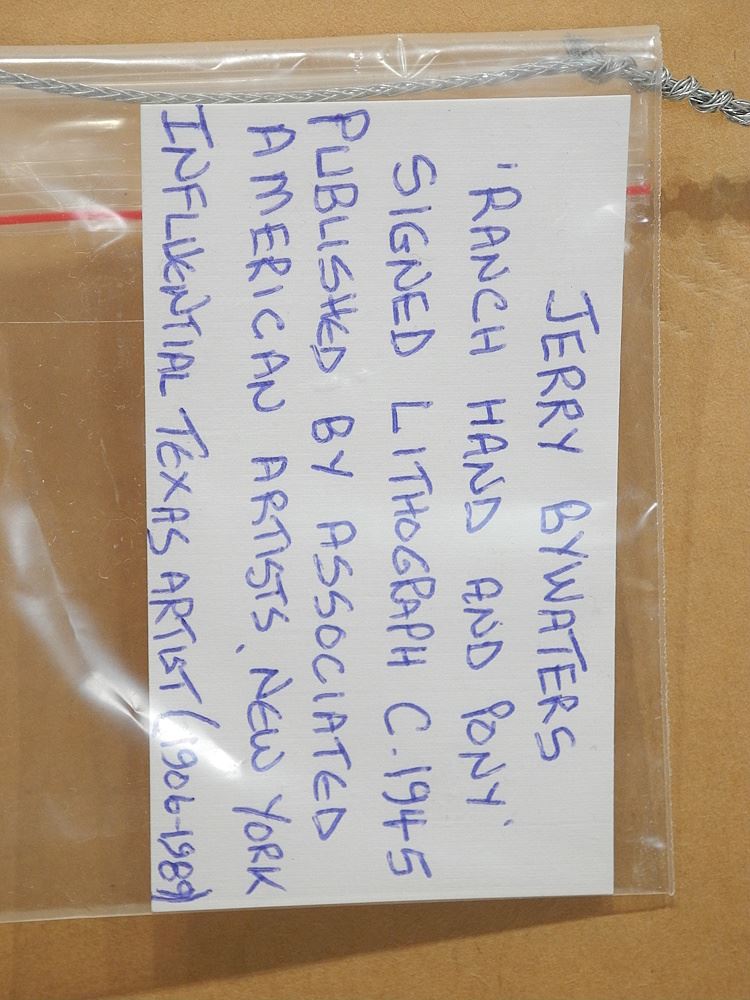 JERRY BYWATERS
'RANCH HAND AND PONY'
SIGNED LITHOGRAPH C.1945
PUBLISHED BY ASSOCIATED
AMERICAN ARTISTS, NEW YORK
INFLUENTIAL TEXAS ARTIST (1906-1989)